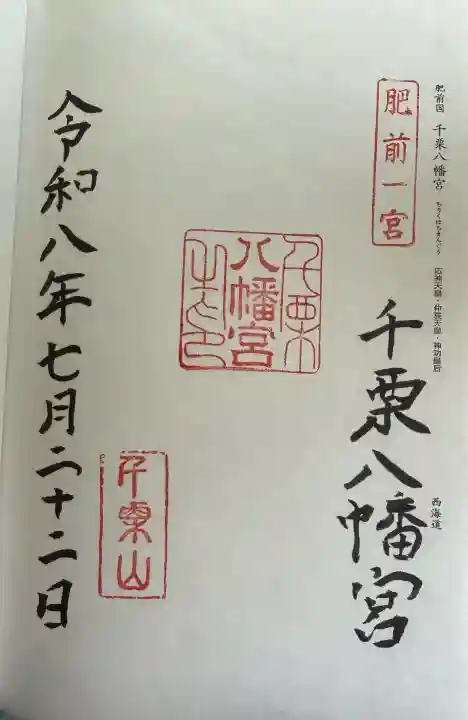 肥前国 千栗八幡宮 ちりくはちまんぐう 応神天皇・仲哀天皇・神功皇后
西海道
肥前一宮
千栗八幡宮
千栗
八幡宮
之印
千栗山
令和八年七月二十二日